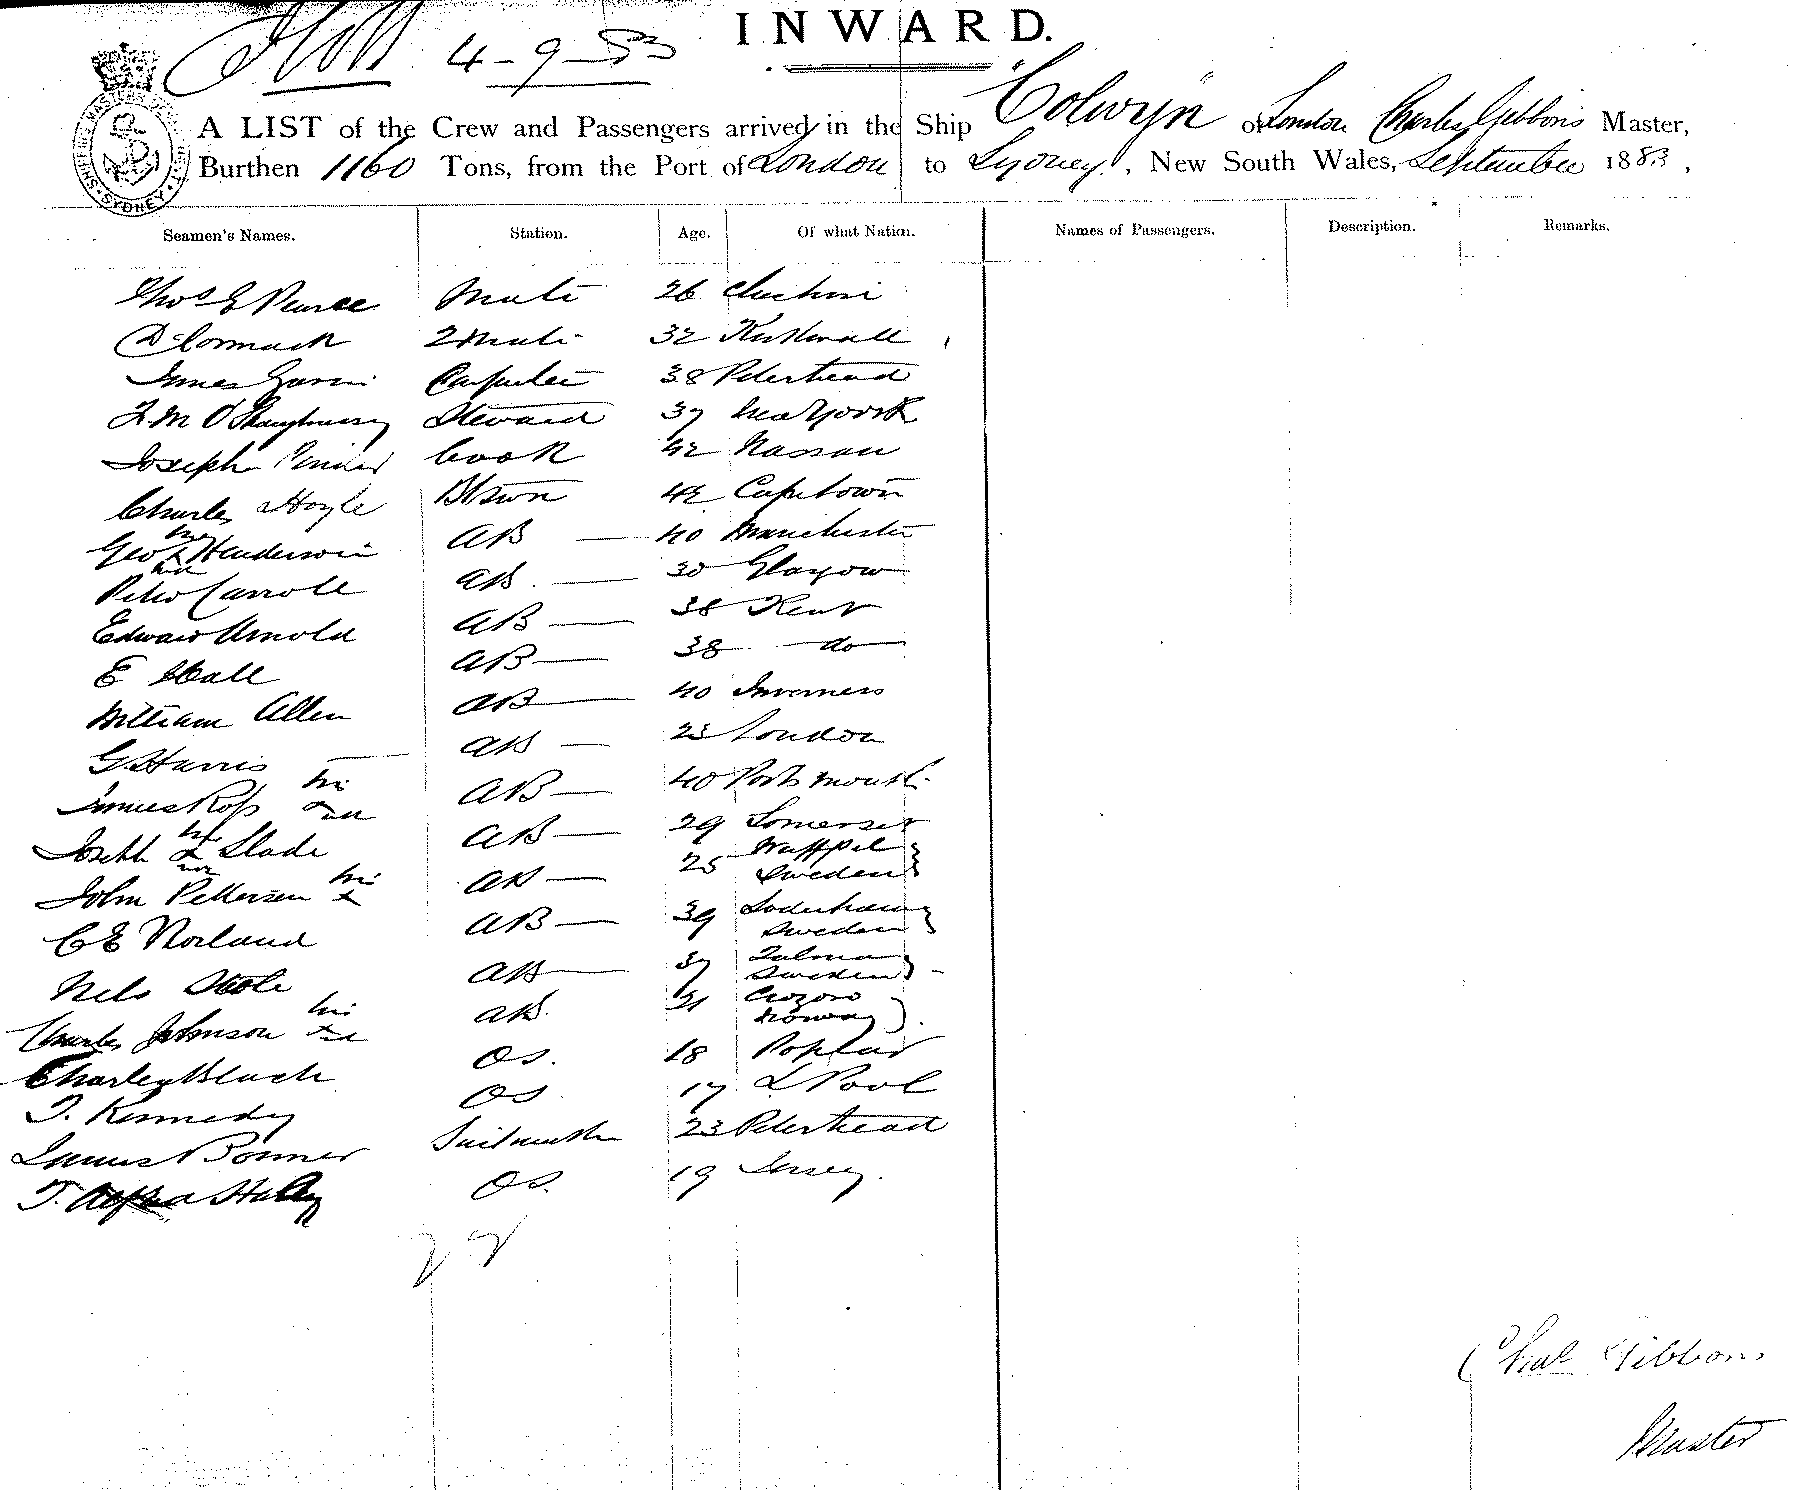 4-9-83
INWARD.
SHIPPING MASTERS OFFICE SYDNEY
A LIST of the Crew and Passengers arrived in the Ship "Colwyn" of London Charles Gibbons Master,
Burthen 1160 Tons, from the Port of London to Sydney, New South Wales, September 1883,
Seamen's Names. Station. Age. Of what Nation. Names of Passengers. Description. Remarks.
Thos E Pearce Mate 26
D Cormack 2 Mate 32 Kirkwall
James Carpenter 38 Peterhead
F. M O'Shaughnessy Steward 37 New York
Joseph Cook 42 Nassau
Charles Hoyle Btswn 42 Capetown
Geo his x Henderson AB 40 Manchester
Peter Carroll AB 30 Glasgow
Edward Arnold AB 38 Kent
E Hall AB 38 do
William Allen AB 40 Inverness
G Harris AB 23 London
James Ross his x AB 40 Portsmouth
Joseph his x Slade AB 29 Somerset
John Pettersen his x AB 25 Sweden
C E Norland AB 39 Soderham Sweden
Nels AB 37 Sweden
Charles Johnson his x AB 21 Norway
Charley Black OS. 18 Poplar
T. Kennedy OS 17 L'Pool
James Bonner Sailmaker 23 Peterhead
T. OS. 19 Jersey.
Chas Gibbons
Master